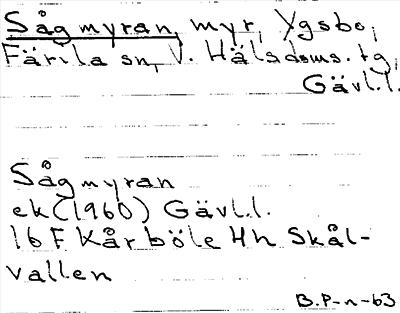 Sågmyran, myr, Ygsbo,
Färila sn, V. Hälsdoms. tg,
Gävl.l.
Sågmyran
ek(1960) Gävl.l.
16 F Kårböle Hh Skål-
vallen
B.P-n-63